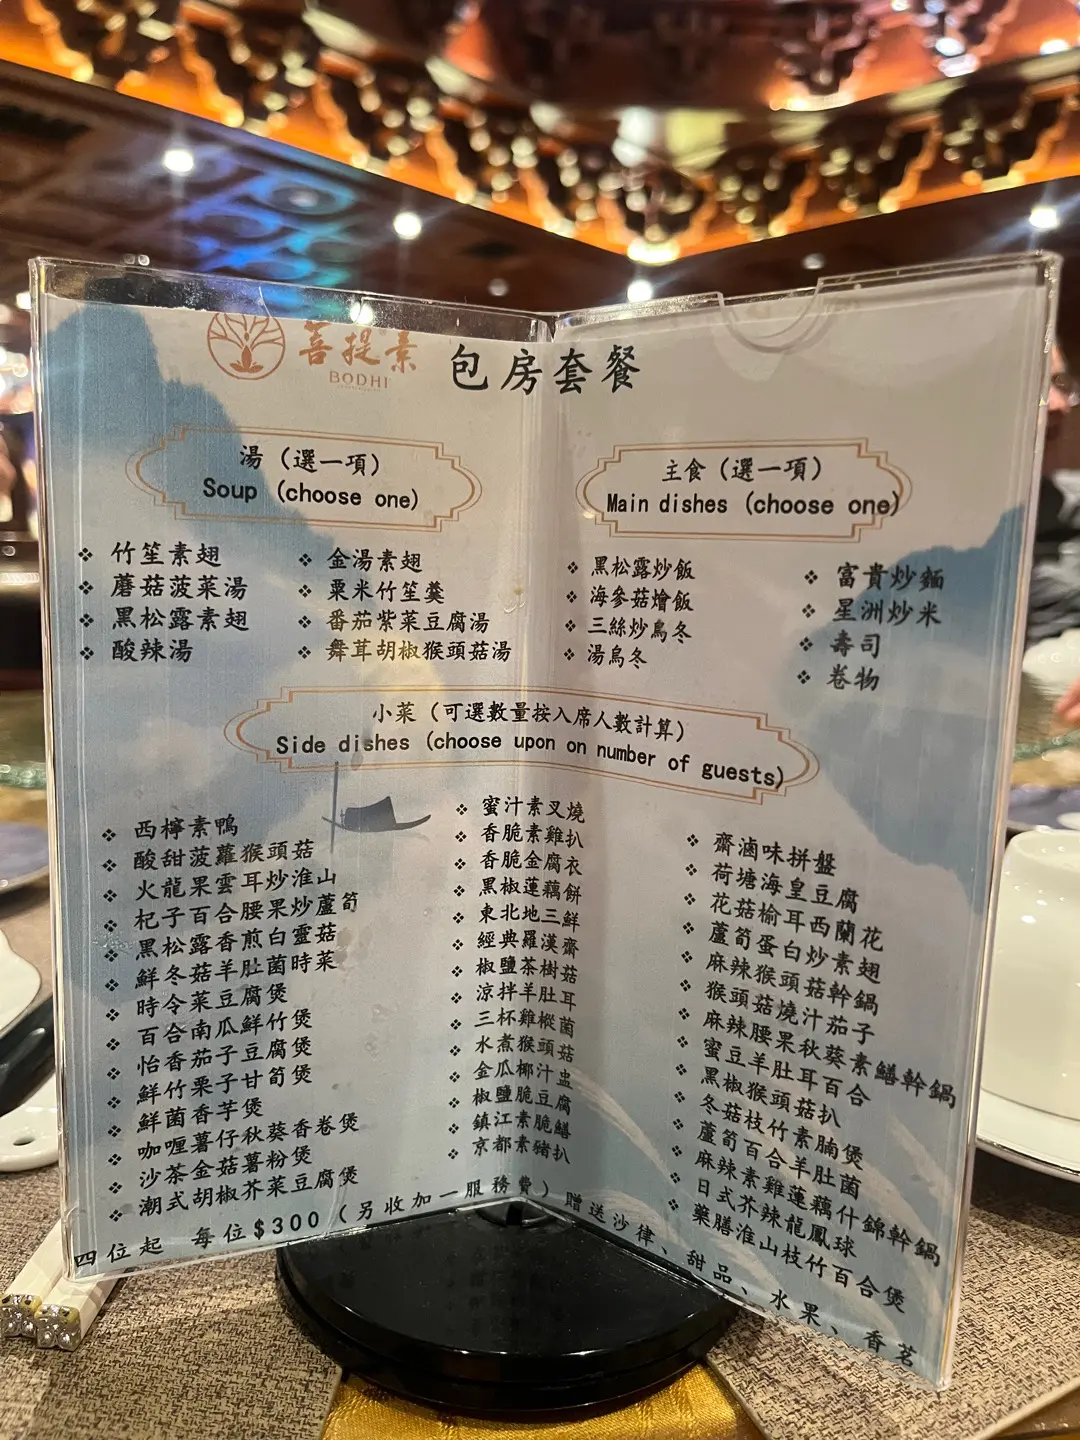 菩提素
BODHI
包房套餐
湯（選一項）
Soup (choose one)
❖ 竹笙素翅
❖ 蘑菇菠菜湯
❖ 黑松露素翅
❖ 酸辣湯
❖ 金湯素翅
❖ 粟米竹笙羹
❖ 番茄紫菜豆腐湯
❖ 舞茸胡椒猴頭菇湯
主食（選一項）
Main dishes (choose one)
❖ 黑松露炒飯
❖ 海參菇燴飯
❖ 三絲炒烏冬
❖ 湯烏冬
❖ 富貴炒麵
❖ 星洲炒米
❖ 壽司
❖ 卷物
小菜（可選數量按入席人數計算）
Side dishes (choose upon on number of guests)
❖ 西檸素鴨
❖ 酸甜菠蘿猴頭菇
❖ 火龍果雲耳炒淮山
❖ 杞子百合腰果炒蘆筍
❖ 黑松露香煎白靈菇
❖ 鮮冬菇羊肚菌時菜
❖ 時令菜豆腐煲
❖ 百合南瓜鮮竹煲
❖ 怡香茄子豆腐煲
❖ 鮮竹栗子甘筍煲
❖ 鮮菌香芋煲
❖ 咖喱薯仔秋葵香卷煲
❖ 沙茶金菇薯粉煲
❖ 潮式胡椒芥菜豆腐煲
❖ 蜜汁素叉燒
❖ 香脆素雞扒
❖ 香脆金腐衣
❖ 黑椒蓮藕餅
❖ 東北地三鮮
❖ 經典羅漢齋
❖ 椒鹽茶樹菇
❖ 涼拌羊肚耳
❖ 三杯雞樅菌
❖ 水煮猴頭菇
❖ 金瓜椰汁盅
❖ 椒鹽脆豆腐
❖ 鎮江素脆鱔
❖ 京都素豬扒
❖ 齋滷味拼盤
❖ 荷塘海皇豆腐
❖ 花菇榆耳西蘭花
❖ 蘆筍蛋白炒素翅
❖ 麻辣猴頭菇幹鍋
❖ 猴頭菇燒汁茄子
❖ 麻辣腰果秋葵素鱔幹鍋
❖ 蜜豆羊肚耳百合
❖ 黑椒猴頭菇扒
❖ 冬菇枝竹素腩煲
❖ 蘆筍百合羊肚菌
❖ 麻辣素雞蓮藕什錦幹鍋
❖ 日式芥辣龍鳳球
❖ 藥膳淮山枝竹百合煲
四位起 每位$300（另收加一服務費）贈送沙律、甜品、水果、香茗